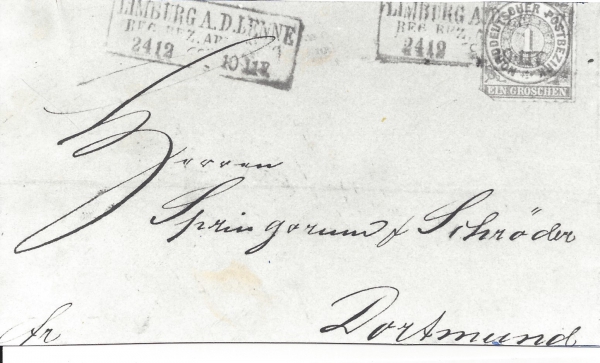 LIMBURG A.D. LENNE
REG. BEZ. AR
24 12
10 11 V.
LIMBURG A.
REG. BEZ.
24 12
NORDDEUTSCHER POSTBEZIRK
1
EIN GROSCHEN
Herren
Springorum & Schröder
Dortmund
fr